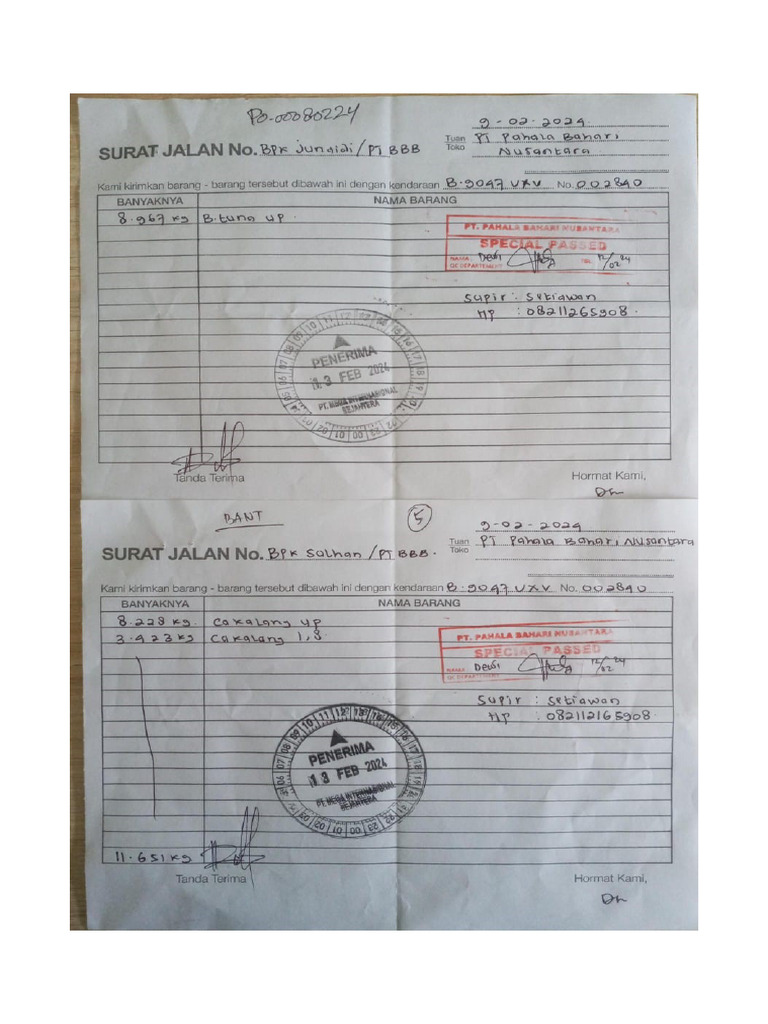 PO-00080224
9-02-2024
SURAT JALAN No. BPK Junaidi/PT BBB
Tuan PT Pahala Bahari
Toko Nusantara
Kami kirimkan barang - barang tersebut dibawah ini dengan kendaraan B.9047 UXV No. 002840
BANYAKNYA NAMA BARANG
8.967 kg B.tuna up
PT. PAHALA BAHARI NUSANTARA
SPECIAL PASSED
NAMA : Dewi TGL 12/02 24
QC DEPARTEMENT
Supir : Setiawan
HP : 08211265908
PENERIMA
13 FEB 2024
Tanda Terima Hormat Kami,
BANT 5
9-02-2024
SURAT JALAN No. BPK Salhan/PT BBB.
Tuan PT Pahala Bahari Nusantara
Toko
Kami kirimkan barang - barang tersebut dibawah ini dengan kendaraan B.9047 UXV No. 002840
BANYAKNYA NAMA BARANG
8.228 kg Cakalang up
3.423 kg Cakalang 1,8
PT. PAHALA BAHARI NUSANTARA
SPECIAL PASSED
NAMA : Dewi 12/02 24
QC DEPARTEMENT
Supir : Setiawan
HP : 082112165908
PENERIMA
13 FEB 2024
11.651 kg
Tanda Terima Hormat Kami,